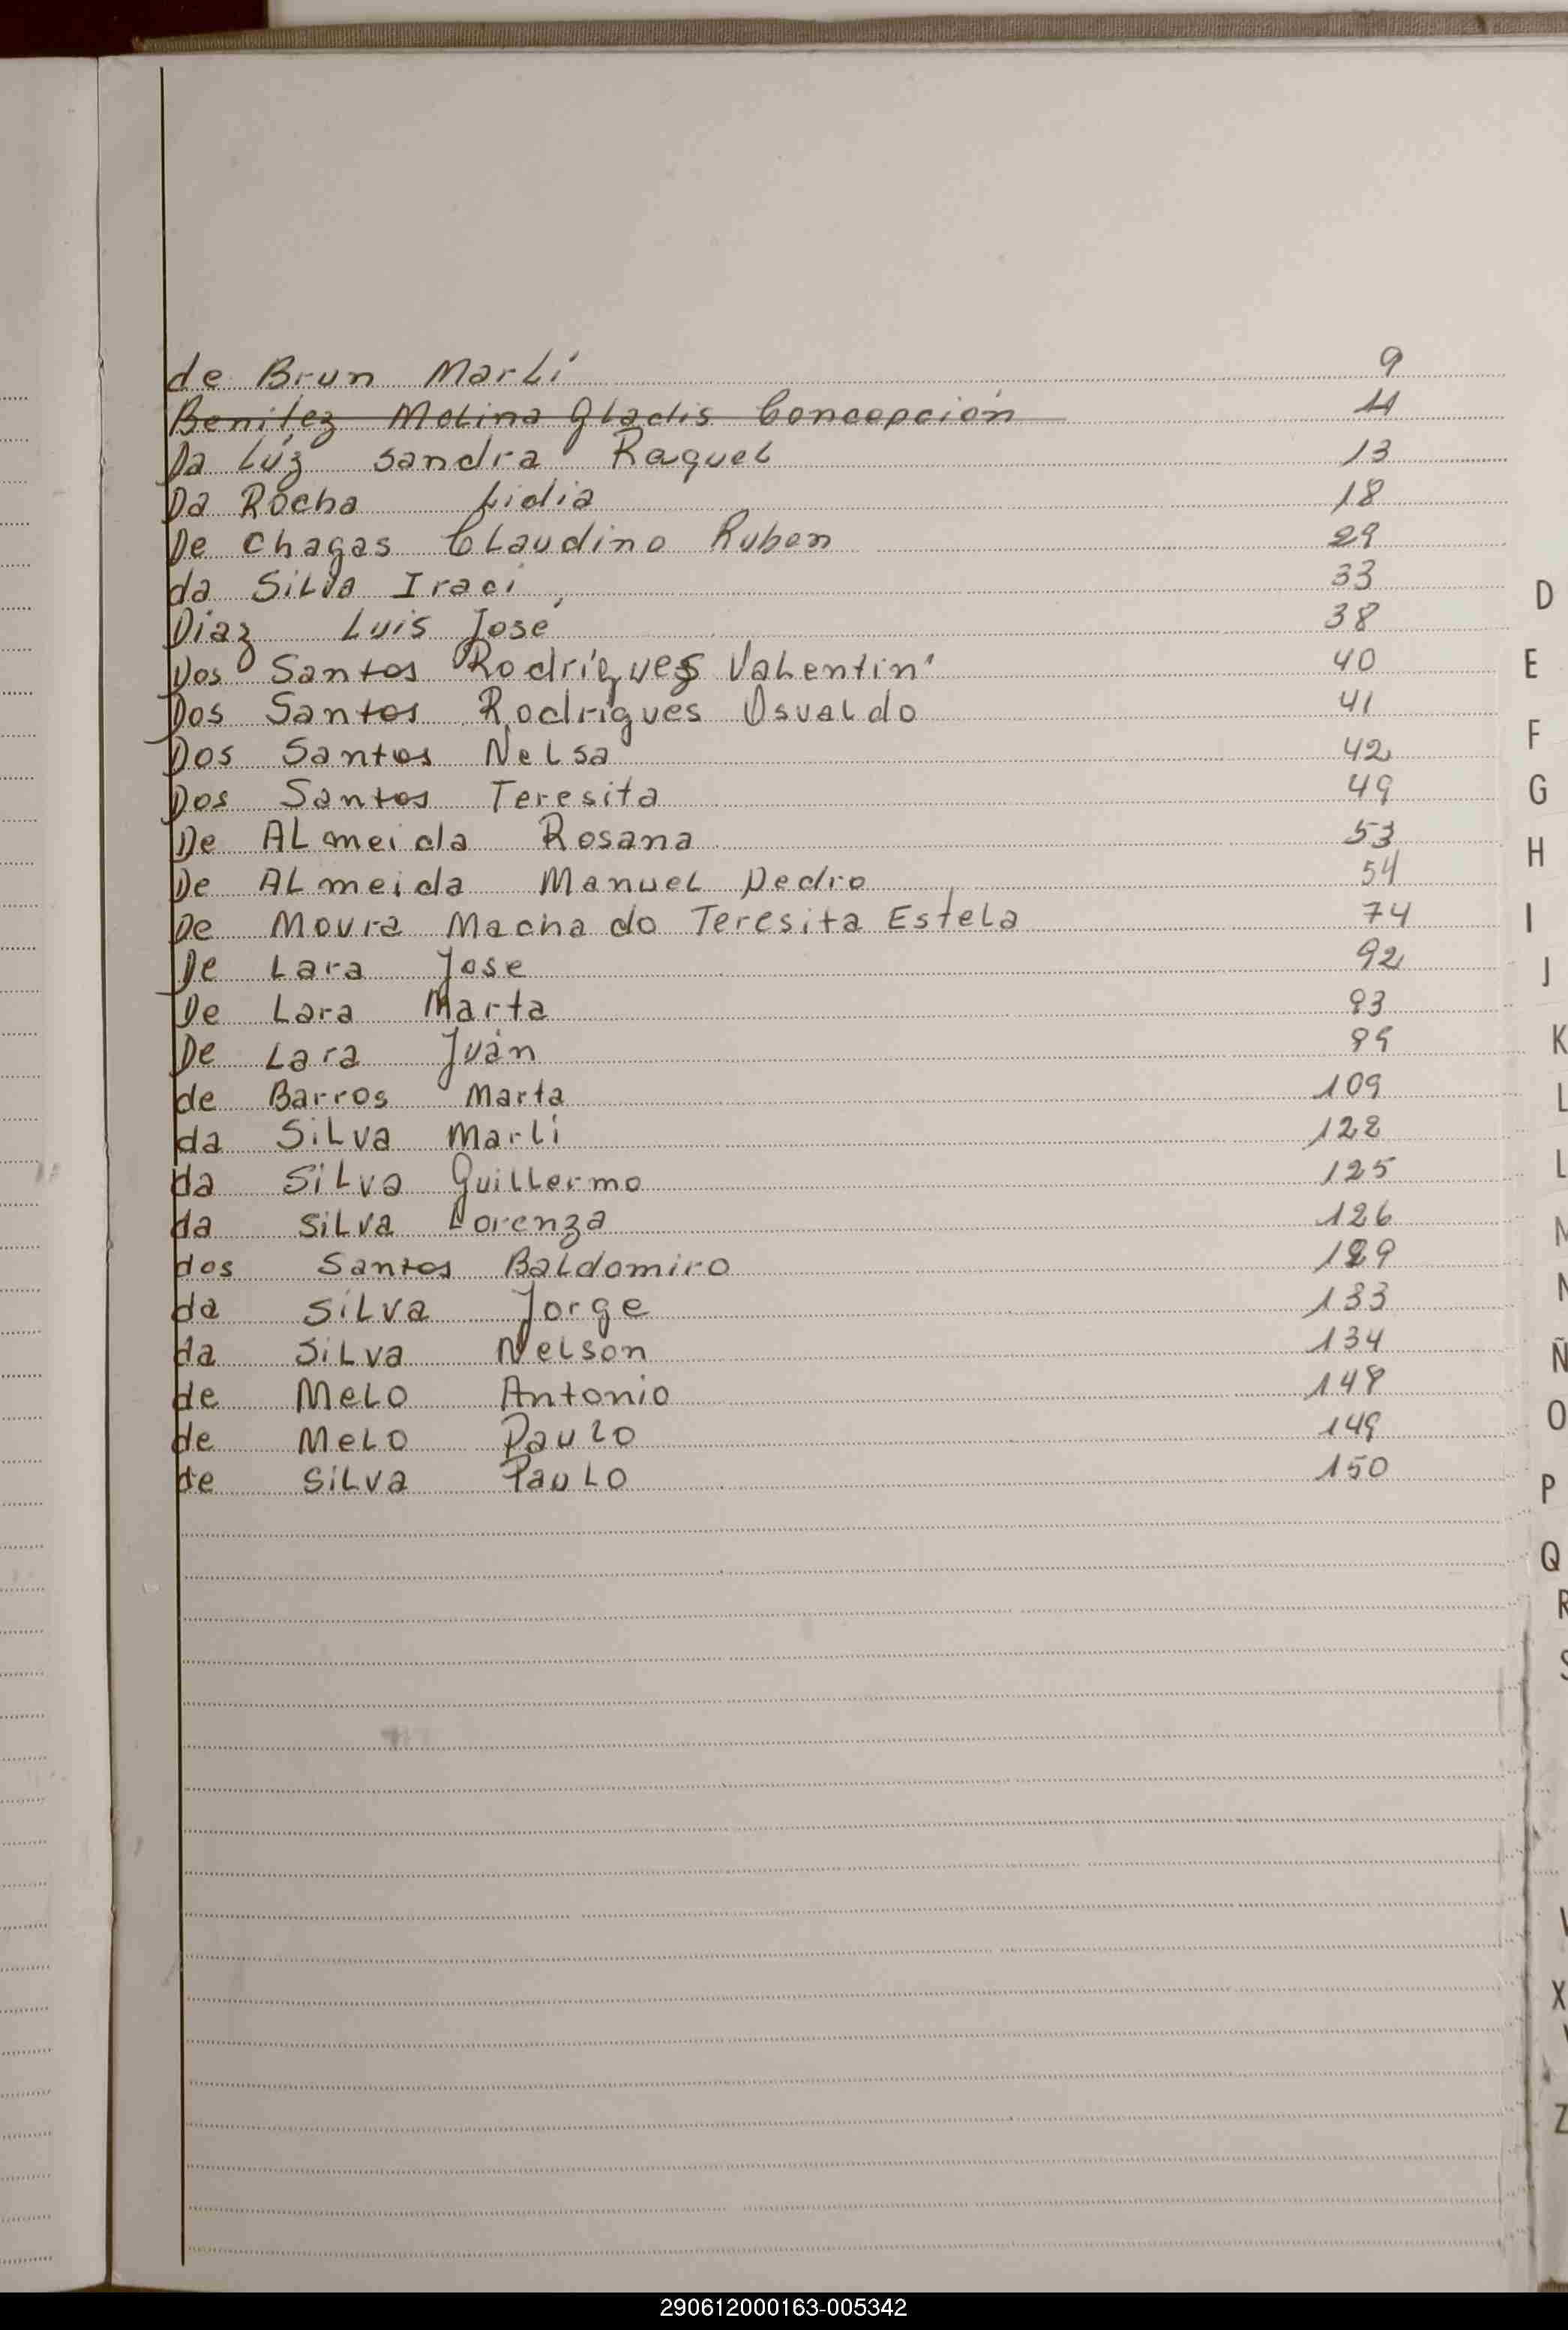 de Brun Marlí 9
Benitez Molina Gladis Concepción 11
Da Lúz Sandra Raquel 13
Da Rocha Lidia 18
De Chagas Claudino Ruben 29
da Silva Iraci 33
Diaz Luis José 38
Dos Santos Rodrígues Valentin 40
Dos Santos Rodrígues Osvaldo 41
Dos Santos Nelsa 42
Dos Santos Teresita 49
De Almeida Rosana 53
De Almeida Manuel Pedro 54
De Moura Machado Teresita Estela 74
De Lara Jose 92
De Lara Marta 93
De Lara Juán
de Barros Marta 109
da Silva Marli 122
da Silva Guillermo 125
da Silva Lorenza 126
dos Santos Baldomiro 129
da Silva Jorge 133
da Silva Nelson 134
de Melo Antonio 148
de Melo Paulo 149
de Silva Paulo 150
D
E
F
G
H
I
J
K
L
L
M
N
Ñ
O
P
Q
R
S
V
X
Y
Z
290612000163-005342